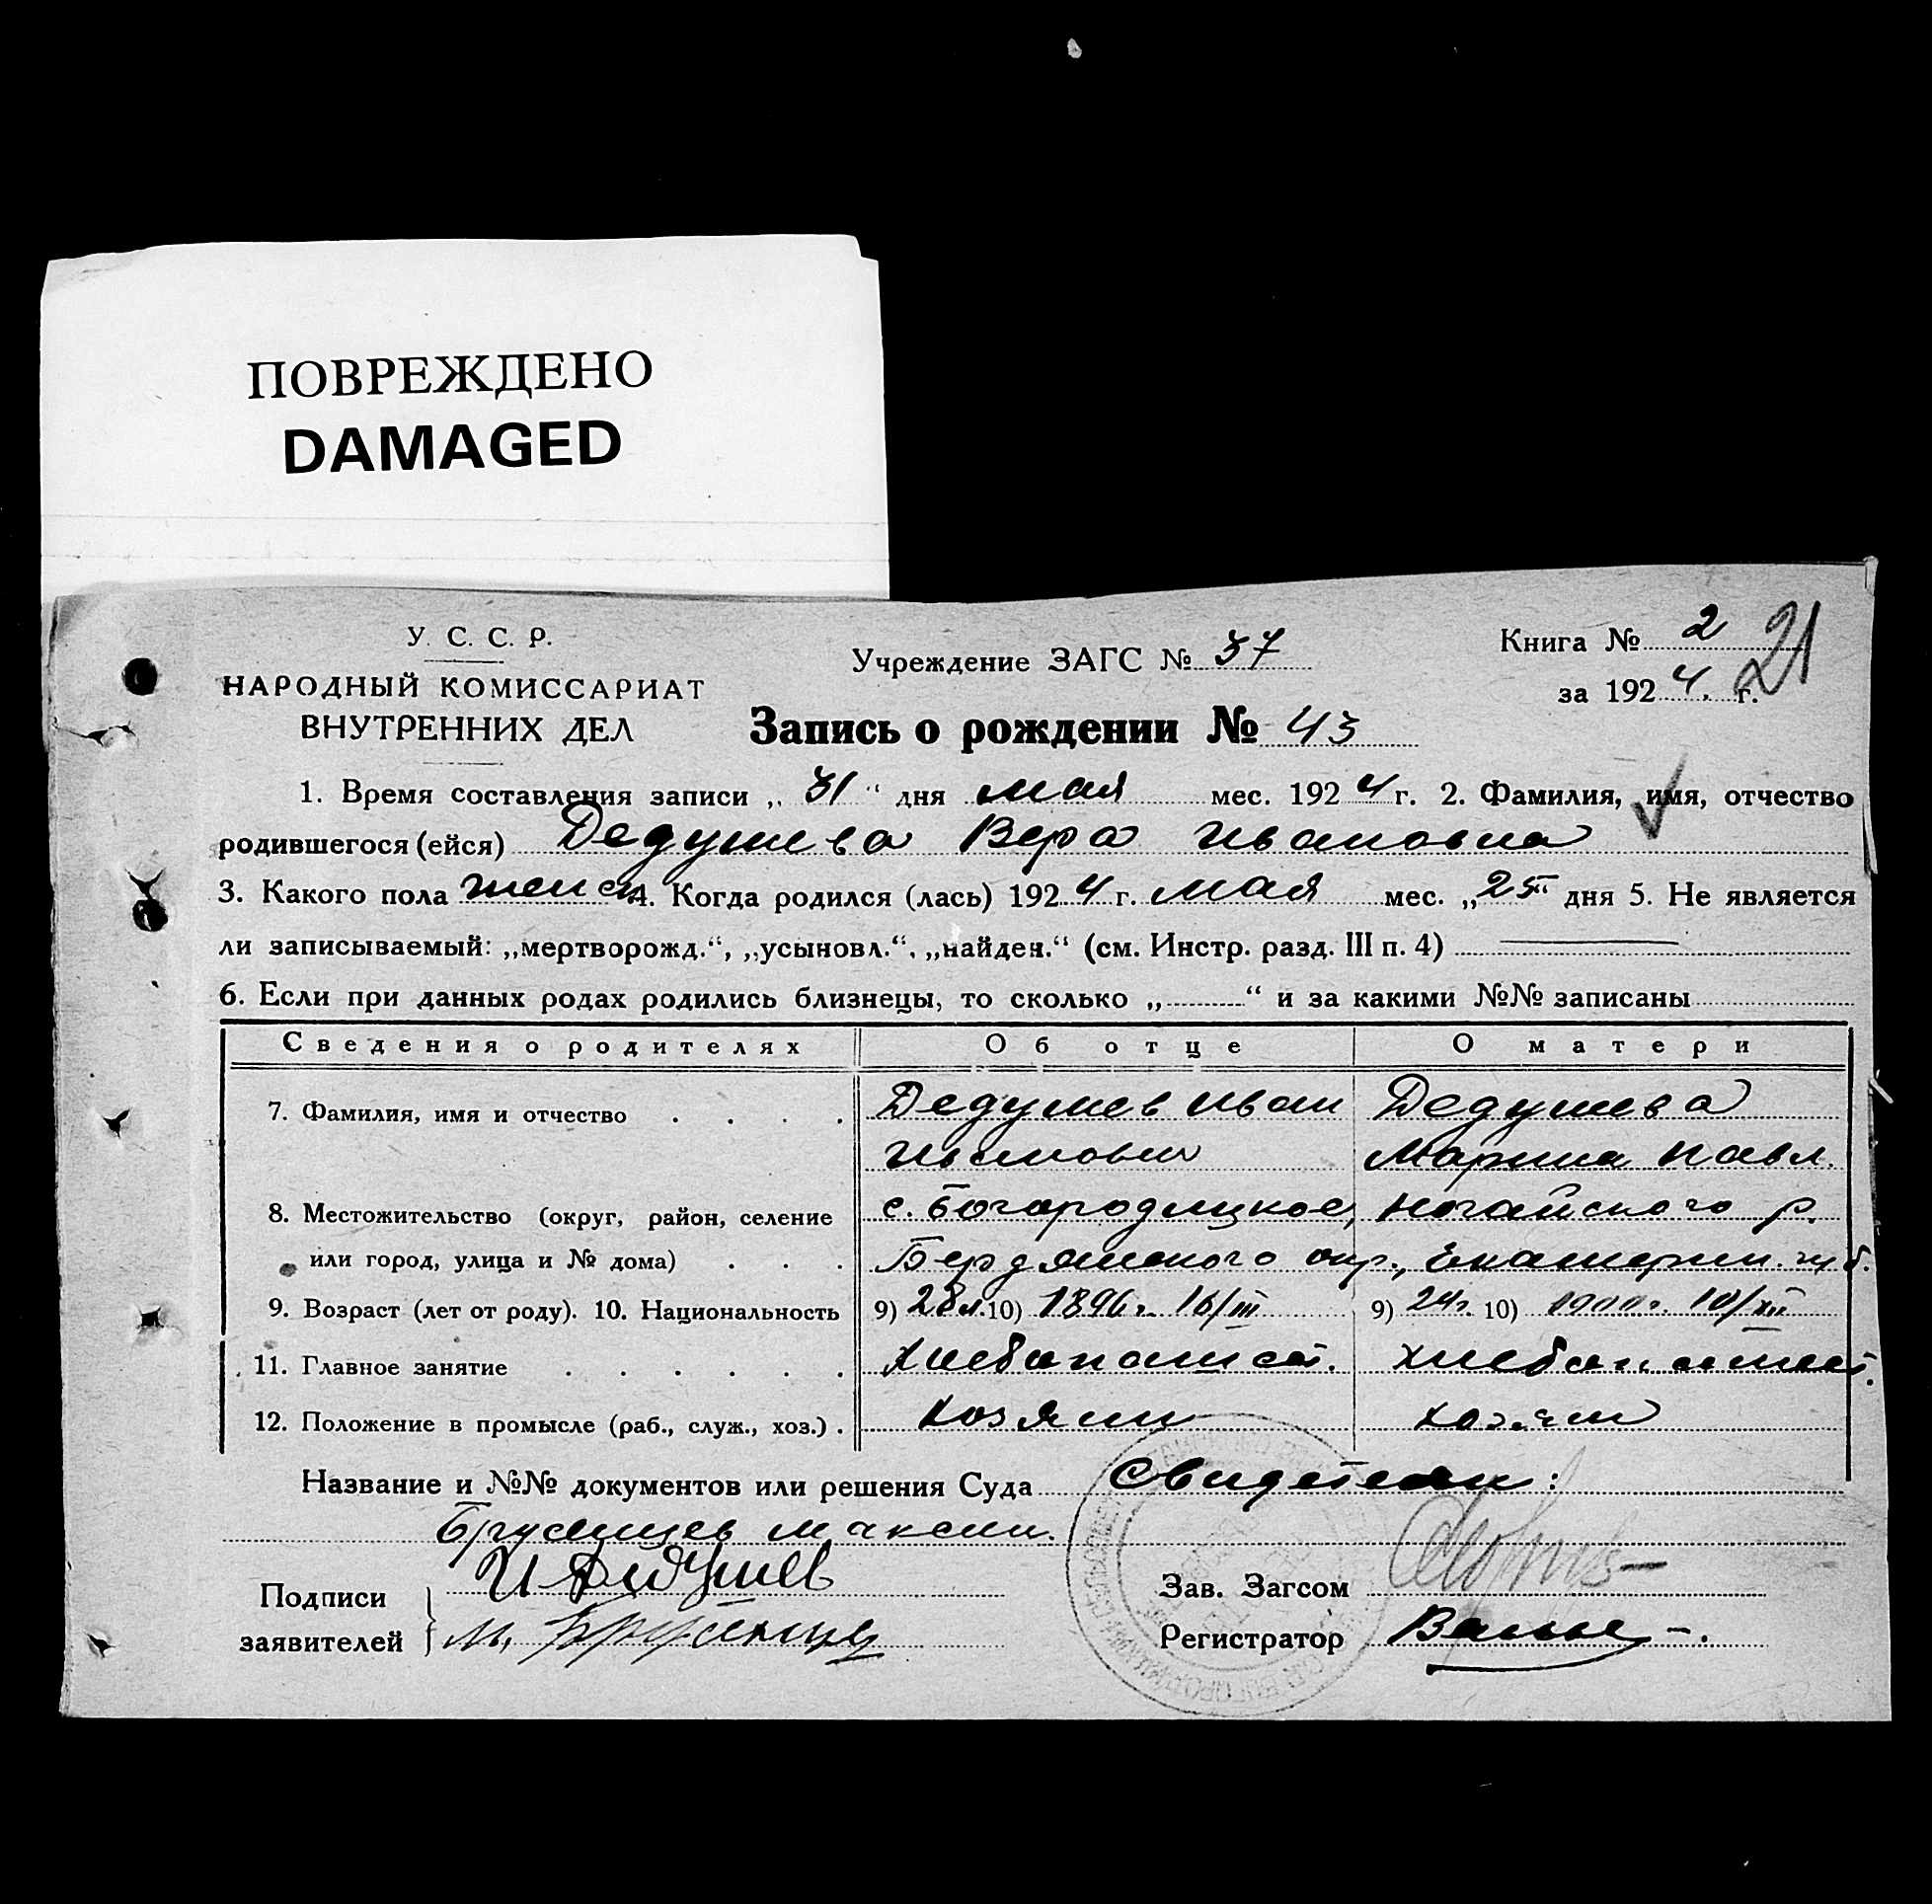 ПОВРЕЖДЕНО
DAMAGED
У. С. С. Р.
НАРОДНЫЙ КОМИССАРИАТ
ВНУТРЕННИХ ДЕЛ
Учреждение ЗАГС № 37
Книга № 2 21
за 1924 г.
Запись о рождении № 43
1. Время составления записи „ 31 “ дня мая мес. 1924 г. 2. Фамилия, имя, отчество
родившегося (ейся) Дедушева Вера Ивановна
3. Какого пола женск 4. Когда родился (лась) 1924 г. мая мес. „25“ дня 5. Не является
ли записываемый: „мертворожд.“, „усыновл.“, „найден.“ (см. Инстр. разд. III п. 4)
6. Если при данных родах родились близнецы, то сколько „ “ и за какими №№ записаны
Сведения о родителях Об отце О матери
7. Фамилия, имя и отчество . . . . Дедушев Иван Дедушева
Иванович Марина Павл.
8. Местожительство (округ, район, селение с. Богородицкое, Ногайского р.
или город, улица и № дома) . . . Бердянского окр., Екатерин. губ.
9. Возраст (лет от роду). 10. Национальность 9) 28 л. 10) 1896 г. 16/III 9) 24 г. 10) 1900 г. 10/XII
11. Главное занятие . . . . . . Хлебопашест. хлебопашест.
12. Положение в промысле (раб., служ., хоз.) . хозяин хозяин
Название и №№ документов или решения Суда Свидетели:
Брусенцев Максим.
Подписи И Дидушев
заявителей М. Брусенцев
Зав. Загсом
Регистратор